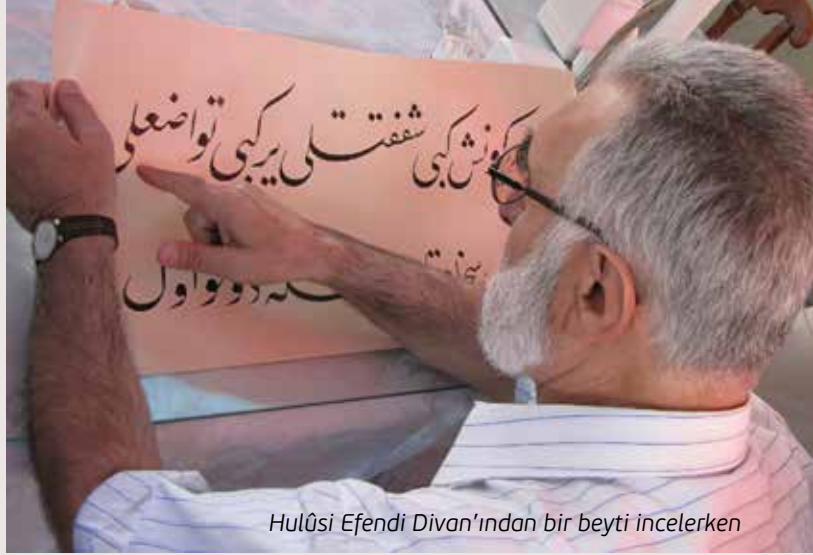 كونش كبی شفقتلی یر كبی تواضعلی
دولو اول
Hulûsi Efendi Divan’ından bir beyti incelerken